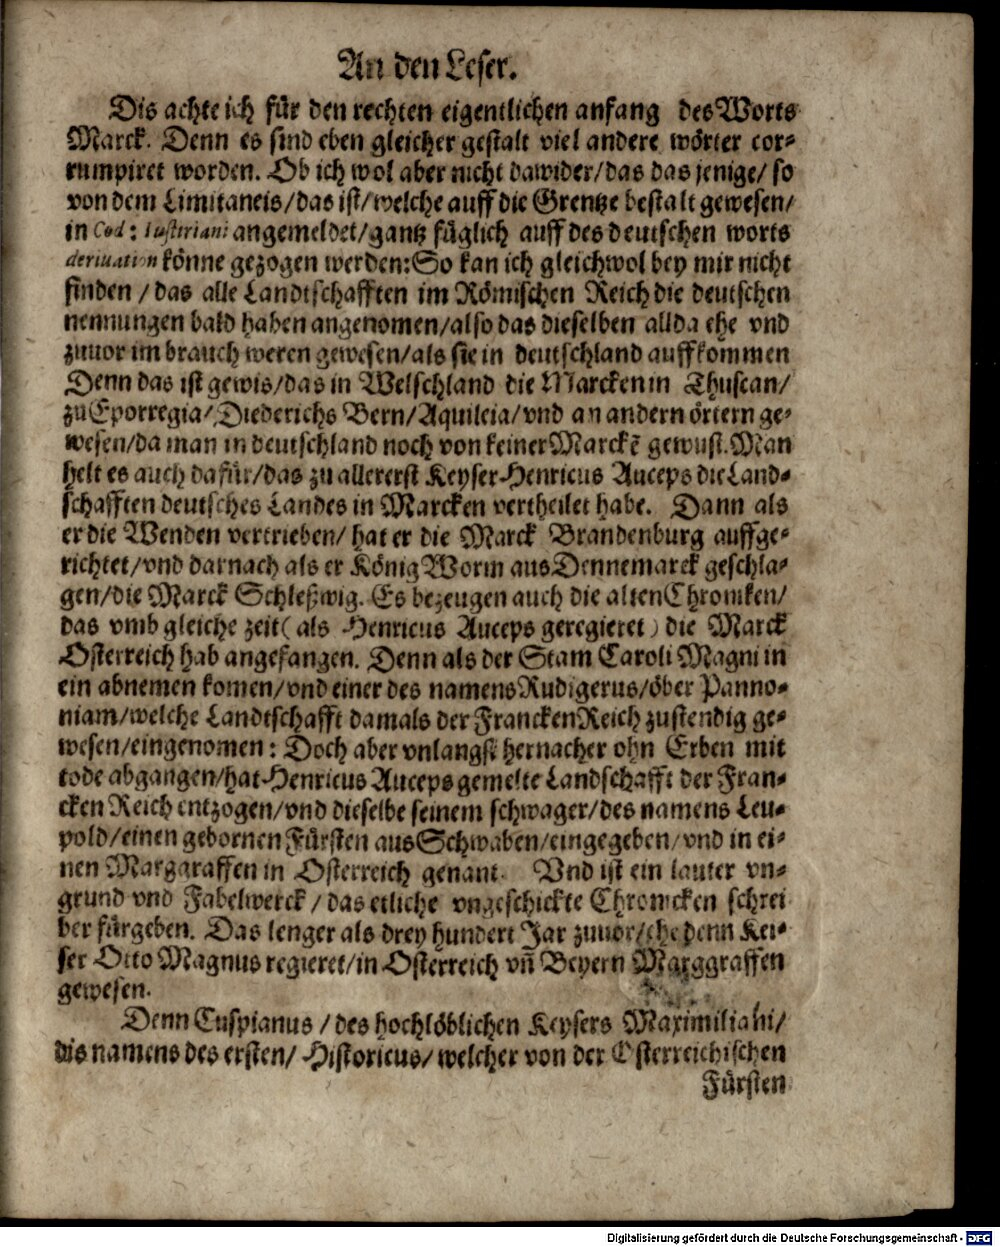 An den Leser.
Dis achte ich für den rechten eigentlichen anfang des Worts
Marck. Denn es sind eben gleicher gestalt viel andere wörter cor-
rumpiret worden. Ob ich wol aber nicht dawider/das das jenige/ so
von dem Limitaneis/das ist/welche auff die Grentze bestalt gewesen/
in Cod: Iustiniani angemeldet/gantz füglich auff des deutschen worts
deriuation könne gezogen werden: So kan ich gleichwol bey mir nicht
finden / das alle Landtschafften im Römischen Reich die deutschen
nennungen bald haben angenomen/also das dieselben allda ehe vnd
zuuor im brauch weren gewesen/als sie in deutschland auffkommen
Denn das ist gewis/das in Welschland die Marcken in Thuscan/
zu Eporregia/Diederichs Bern/Aquileia/vnd an andern örtern ge-
wesen/da man in deutschland noch von keiner Marckē gewust. Man
helt es auch dafür/das zu allererst Keyser Henricus Auceps die Land-
schafften deutsches Landes in Marcken vertheilet habe. Dann als
er die Wenden vertrieben/ hat er die Marck Brandenburg auffge-
richtet/vnd darnach als er König Worm aus Dennemarck geschla-
gen/die Marck Schleßwig. Es bezeugen auch die alten Chroniken/
das vmb gleiche zeit( als Henricus Auceps geregieret) die Marck
Osterreich hab angefangen. Denn als der Stam Caroli Magni in
ein abnemen komen/vnd einer des namens Rudigerus/öber Panno-
niam/welche Landtschafft damals der Francken Reich zustendig ge-
wesen/eingenomen: Doch aber vnlangst hernacher ohn Erben mit
tode abgangen/hat Henricus Auceps gemelte Landschafft der Fran-
cken Reich entzogen/vnd dieselbe seinem schwager/des namens Leu-
pold/einen gebornen Fürsten aus Schwaben/eingegeben/vnd in ei-
nen Marggraffen in Osterreich genant. Vnd ist ein lauter vn-
grund vnd Fabelwerck / das etliche vngeschickte Chronicken schrei
ber fürgeben. Das lenger als drey hundert Jar zuuor/ehe denn Kei-
ser Otto Magnus regieret/in Osterreich vn̄ Beyern Marggraffen
gewesen.
Denn Cuspianus / des hochlöblichen Keysers Maximiliani/
dis namens des ersten/ Historicus/ welcher von der Osterreichischen
Fürsten
Digitalisierung gefördert durch die Deutsche Forschungsgemeinschaft - DFG